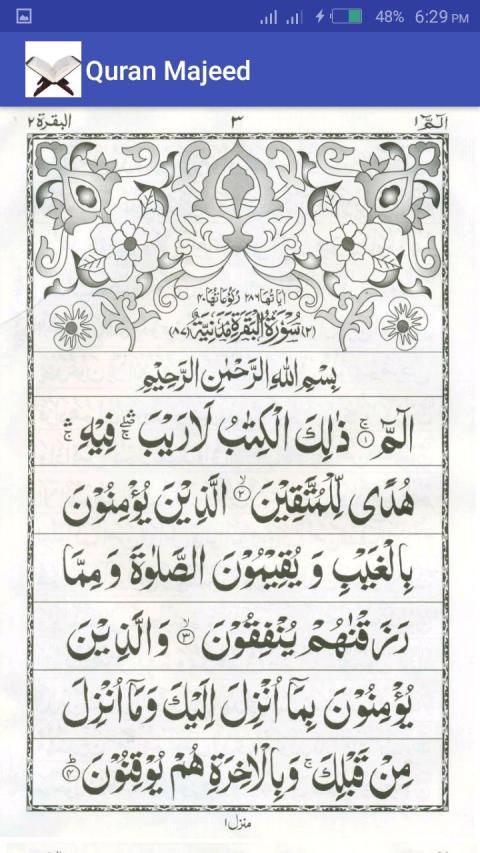 48% 6:29 PM
Quran Majeed
الٓمّٓ ١ ٣ البقرة ٢
اٰيَاتُهَا ٢٨٦ رُكُوْعَاتُهَا ٤٠
(٢) سُوْرَةُ الْبَقَرَةِ مَدَنِيَّةٌ (٨٧)
بِسْمِ اللّٰهِ الرَّحْمٰنِ الرَّحِيْمِ
الٓمّٓ ۚ﴿١﴾ ذٰلِكَ الْكِتٰبُ لَا رَيْبَ ۛۖ فِيْهِ ۛۚ
هُدًى لِّلْمُتَّقِيْنَ ۙ﴿٢﴾ الَّذِيْنَ يُؤْمِنُوْنَ
بِالْغَيْبِ وَ يُقِيْمُوْنَ الصَّلٰوةَ وَ مِمَّا
رَزَقْنٰهُمْ يُنْفِقُوْنَ ۙ﴿٣﴾ وَالَّذِيْنَ
يُؤْمِنُوْنَ بِمَآ اُنْزِلَ اِلَيْكَ وَمَآ اُنْزِلَ
مِنْ قَبْلِكَ ۚ وَبِالْاٰخِرَةِ هُمْ يُوْقِنُوْنَ ؕ﴿٤﴾
منزل ١